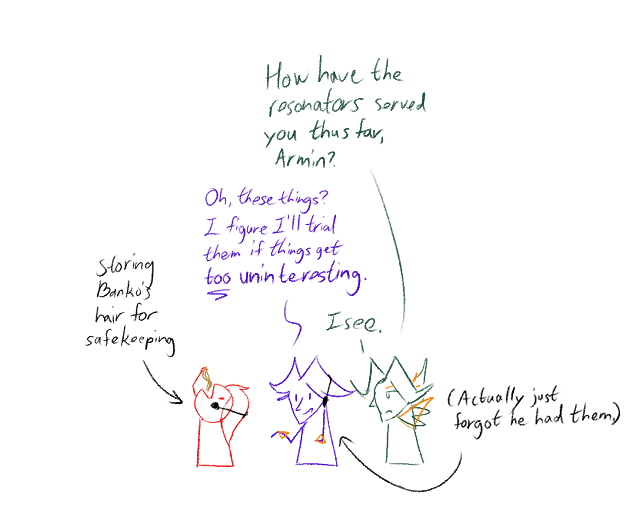 How have the
resonators served
you thus far,
Armin?
Oh, these things?
I figure I'll trial
them if things get
too uninteresting.
I see.
Storing
Banko's
hair for
safekeeping
(Actually just
forgot he had them,)